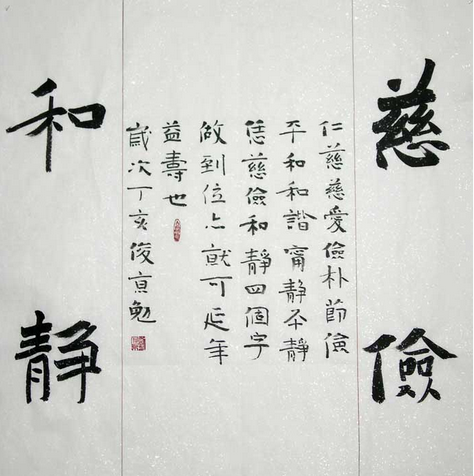 慈儉
仁慈慈愛儉朴節儉
平和和諧甯靜靜
恁慈儉和靜四個字
做到位就可延年
益壽也
歲次丁亥俊勉
和靜